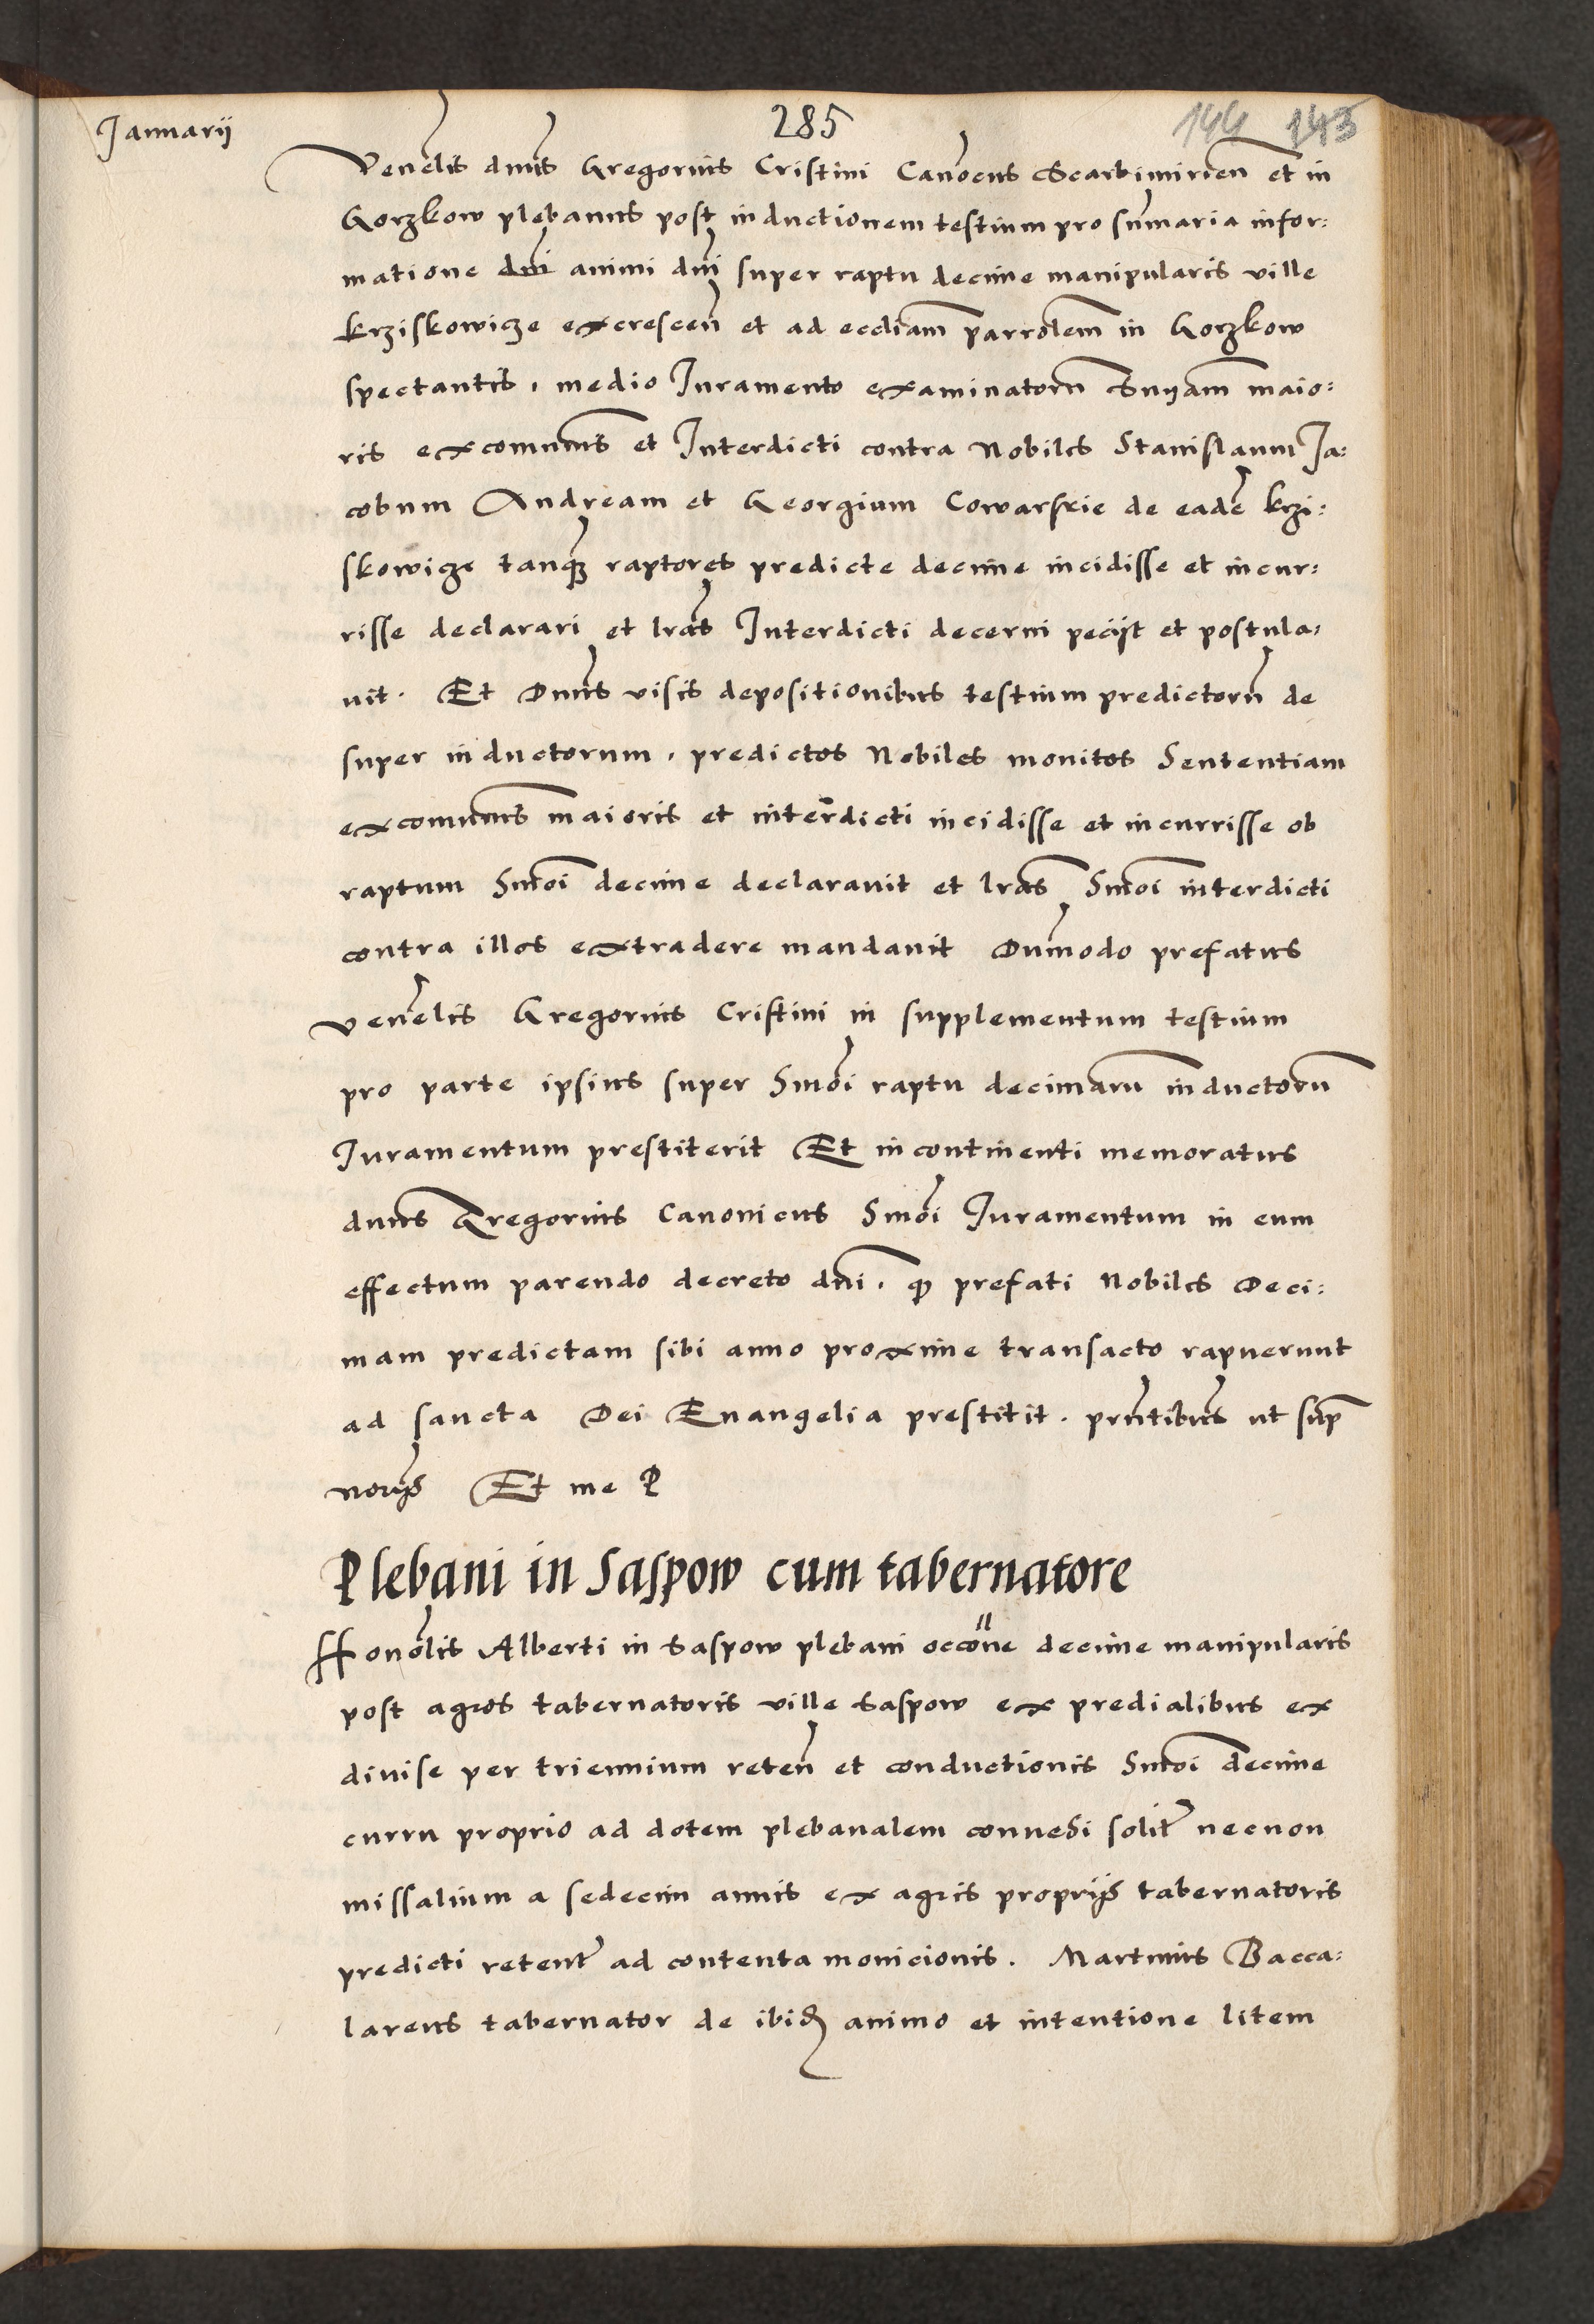 Januarij
285
144 143
Venelis dnus Gregorius Cristini Canocus Scarbimirien et in
Gorzkow plebanus post inductionem testium pro sumaria infor:
matione dni animi dni super raptu decime manipularis ville
krziskowicze excrescen et ad eccliam parrolem in Gorzkow
spectantis, medio Juramento examinatoru Snyam maio:
ris excomunis et Interdicti contra Nobiles Stanislaum Ja:
cobum Andream et Georgium Cowarskie de eade krzi:
skowicze tanq raptores predicte decime incidisse et incur:
risse declarari et lras Interdicti decerni pecijt et postula:
uit. Et Dnus visis depositionibus testium predictoru de
super inductorum, predictos Nobiles monitos Sententiam
excomunis maioris et interdicti incidisse et incurrisse ob
raptum Smoi decime declarauit et lras Smoi interdicti
contra illos extradere mandauit Dumodo prefatus
venelis Gregorius Cristini in supplementum testium
pro parte ipsius super Smoi raptu decimaru inductoru
Juramentum prestiterit Et incontinenti memoratus
dnus Gregorius Canonicus Smoi Juramentum in eum
effectum parendo decreto dni. q prefati Nobiles Deci:
mam predictam sibi anno proxime transacto rapuerunt
ad sancta Dei Euangelia prestitit. pntibus ut sup
norijs Et me P
Plebani in Saspow cum tabernatore
Honolis Alberti in Saspow plebani occone decime manipularis
post agros tabernatoris ville Saspow ex predialibus ex
diuise per triennium reten et conductionis Smoi decime
curru proprio ad dotem plebanalem conuehi solit necnon
missalium a sedecim annis ex agris proprijs tabernatoris
predicti retent ad contenta monicionis. Martinus Bacca:
lareus tabernator de ibid animo et intentione litem